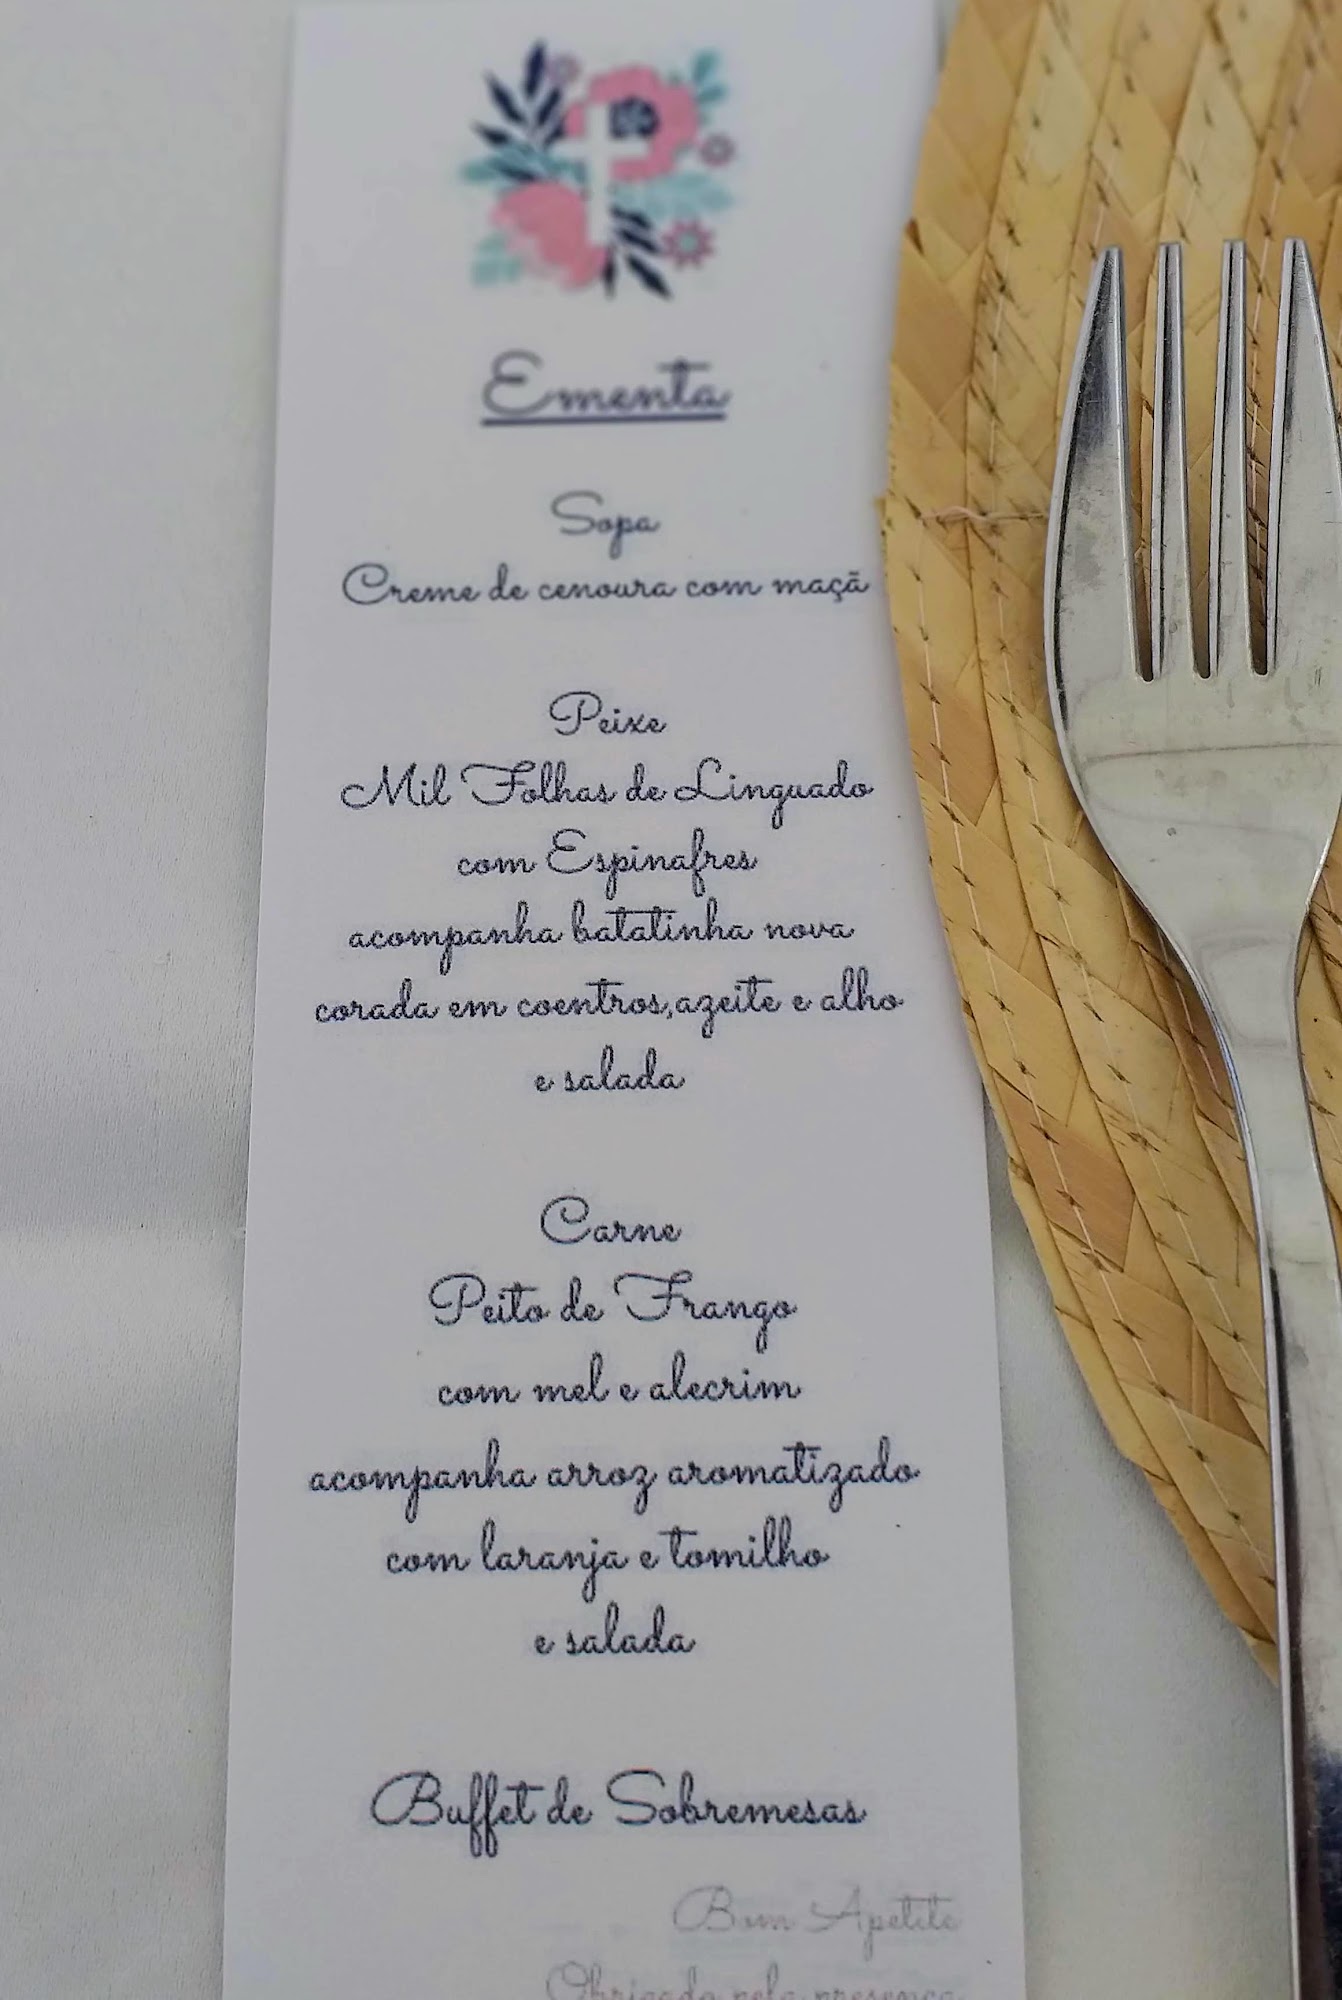 Ementa
Sopa
Creme de cenoura com maçã
Peixe
Mil Folhas de Linguado
com Espinafres
acompanha batatinha nova
corada em coentros,azeite e alho
e salada
Carne
Peito de Frango
com mel e alecrim
acompanha arroz aromatizado
com laranja e tomilho
e salada
Buffet de Sobremesas
Bom Apetite
Obrigado pela presença